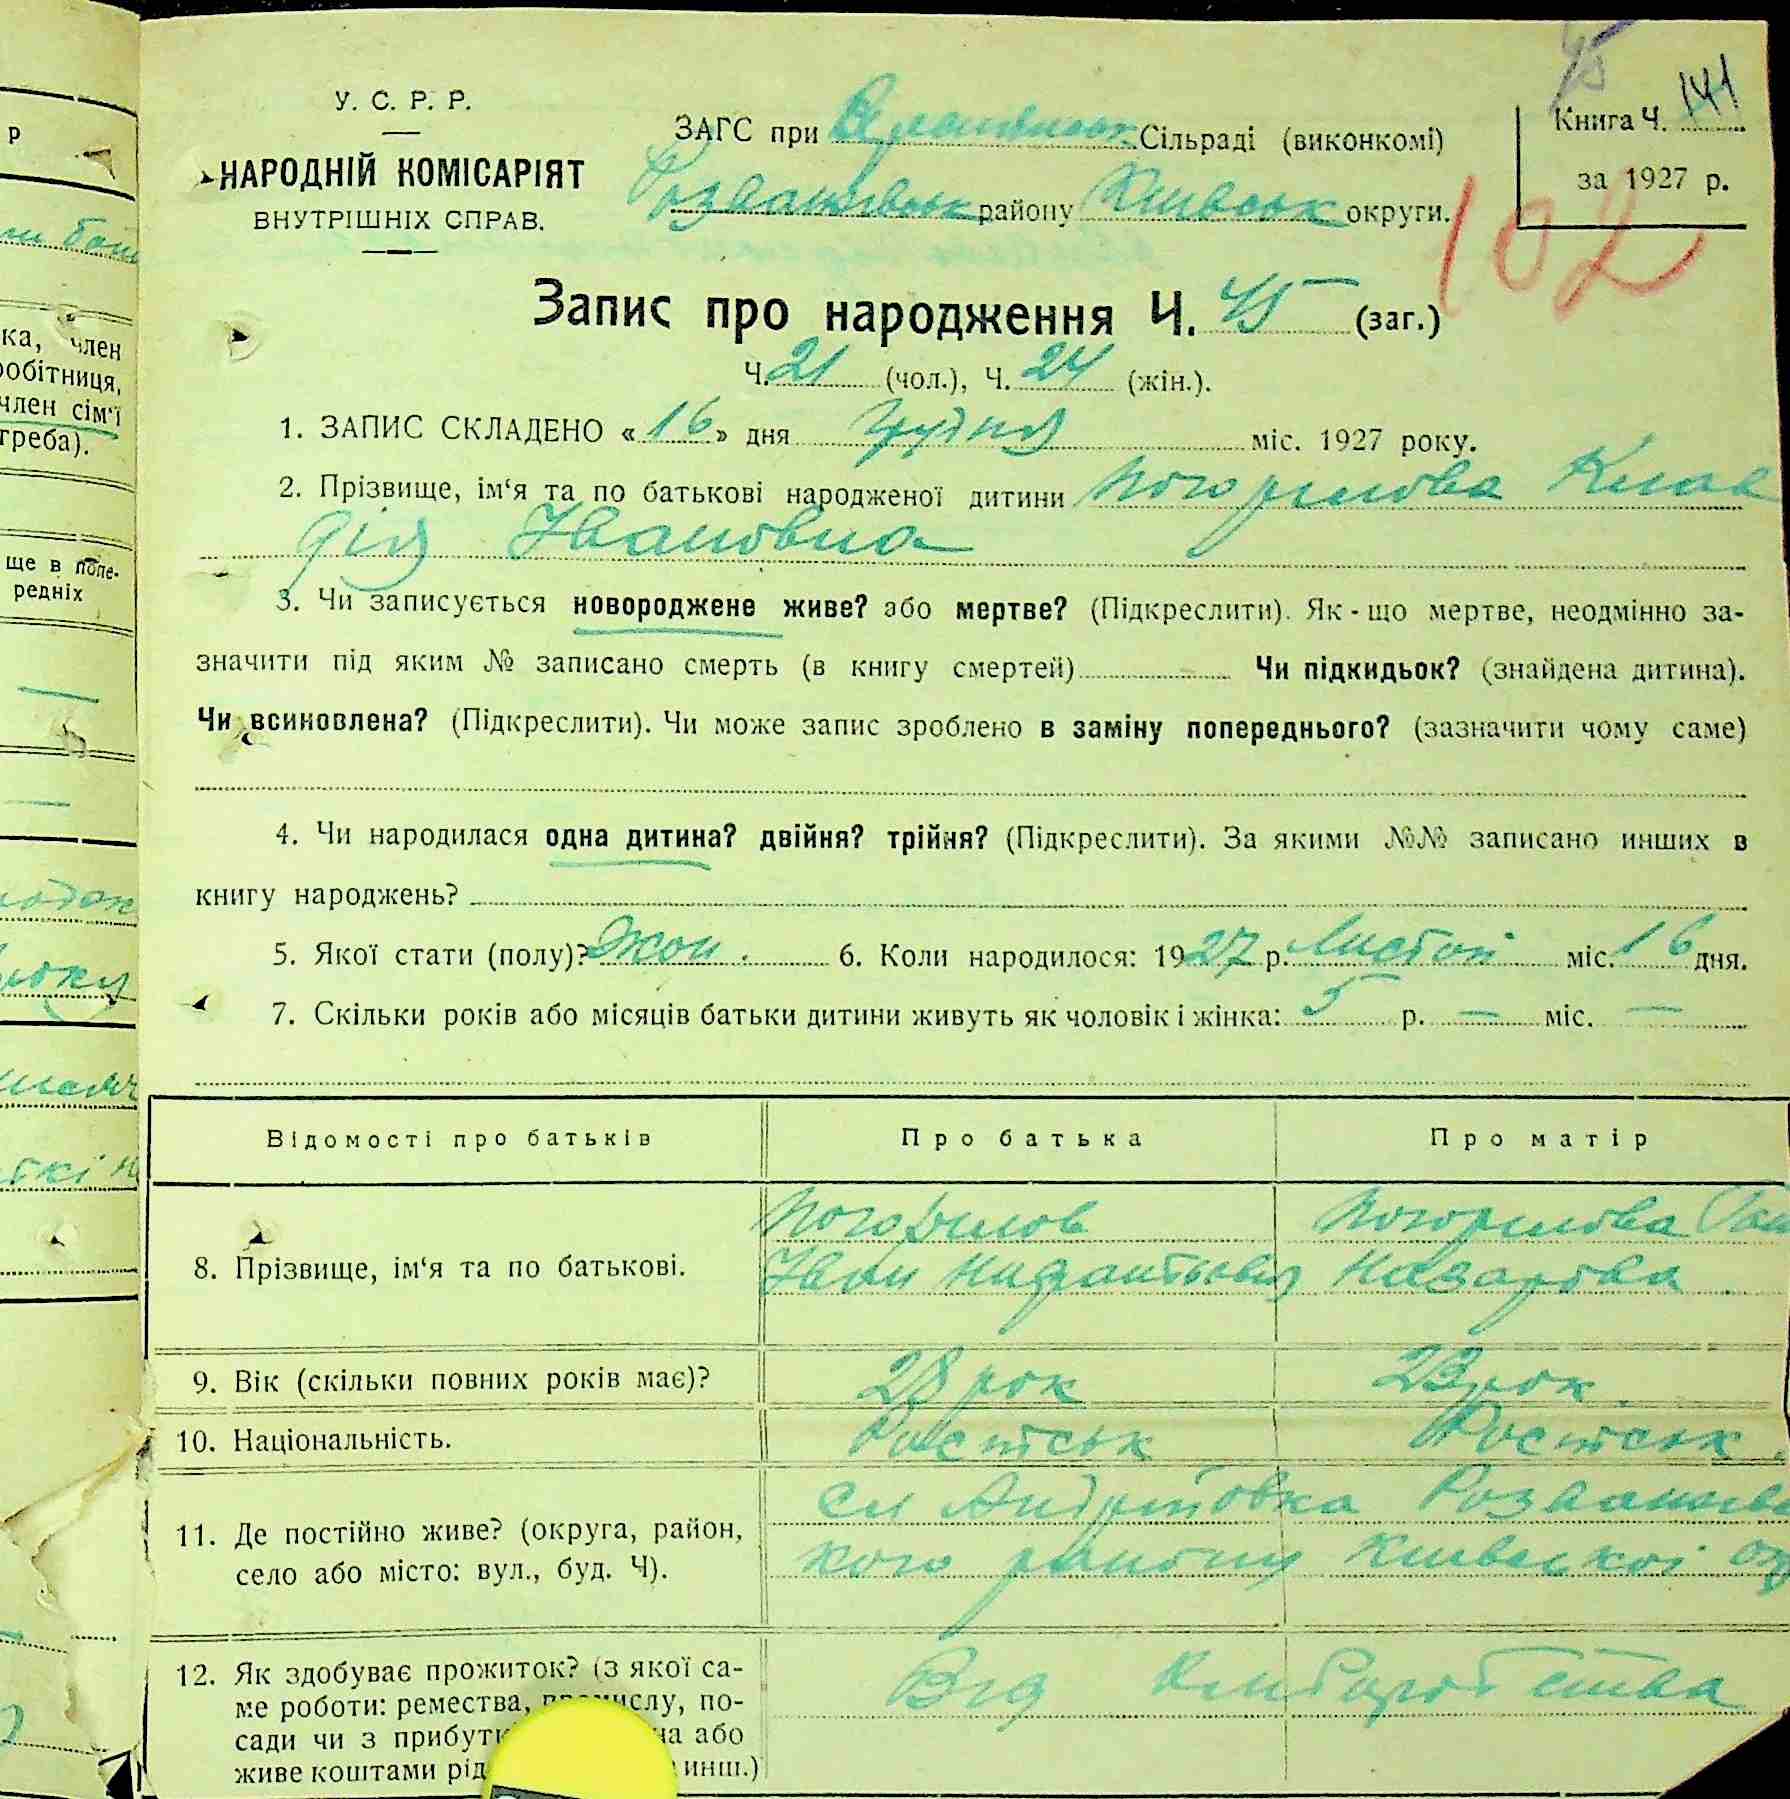 45
У. С. Р. Р.
НАРОДНІЙ КОМІСАРІЯТ
ВНУТРІШНІХ СПРАВ.
ЗАГС при Сільраді (виконкомі)
Розважівськ району Київськ округи.
Книга Ч. 141
за 1927 р.
102
Запис про народження Ч. 45 (заг.)
Ч. 21 (чол.), Ч. 24 (жін.).
1. ЗАПИС СКЛАДЕНО «16» дня Грудня міс. 1927 року.
2. Прізвище, ім‘я та по батькові народженої дитини Погорилова Клав
дія Івановна
3. Чи записується новороджене живе? або мертве? (Підкреслити). Як-що мертве, неодмінно за-
значити під яким № записано смерть (в книгу смертей) Чи підкидьок? (знайдена дитина).
Чи всиновлена? (Підкреслити). Чи може запис зроблено в заміну попереднього? (зазначити чому саме)
4. Чи народилася одна дитина? двійня? трійня? (Підкреслити). За якими №№ записано инших в
книгу народжень?
5. Якої стати (полу)? Жон. 6. Коли народилося: 1927 р. Листоп міс. 16 дня.
7. Скільки років або місяців батьки дитини живуть як чоловік і жінка: 5 р. — міс. —
Відомості про батьків Про батька Про матір
8. Прізвище, ім‘я та по батькові.
Погорилов Погорилова
Іван Назарова
9. Вік (скільки повних років має)? 28 рок 23 рок
10. Національність.
11. Де постійно живе? (округа, район,
село або місто: вул., буд. Ч).
Розважівс
кого району Київскої ок
12. Як здобуває прожиток? (з якої са-
ме роботи: ремества, промислу, по-
сади чи з прибутк на або
живе коштами рід инш.)
Від Хліборобства
р
ка, член
робітниця,
член сім‘ї
треба).
ще в попе-
редніх